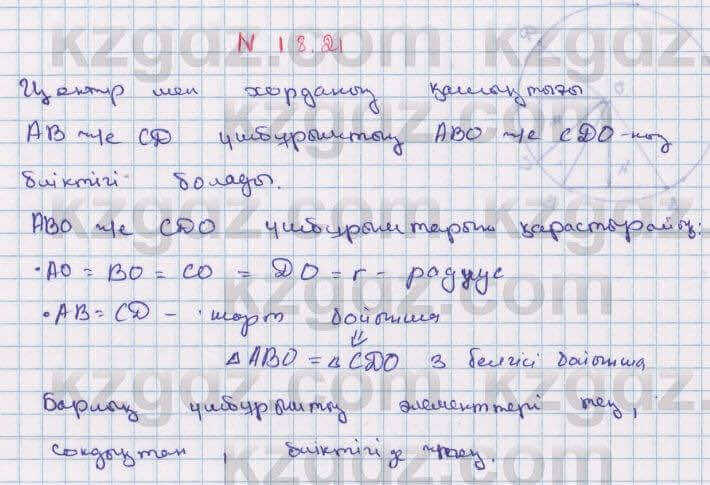 N 18.21
Центр мен хорданың қашықтығы
AB және CD үшбұрыштың ABO және CDO-ның
биіктігі болады.
ABO және CDO үшбұрыштарын қарастырайық:
·AO = BO = CO = DO = r - радиус
·AB = CD - шарт бойынша
⇓
△ABO = △CDO 3 белгісі бойынша
Барлық үшбұрыштың элементтері тең,
сондықтан, биіктігі де тең.
kzgdz.com